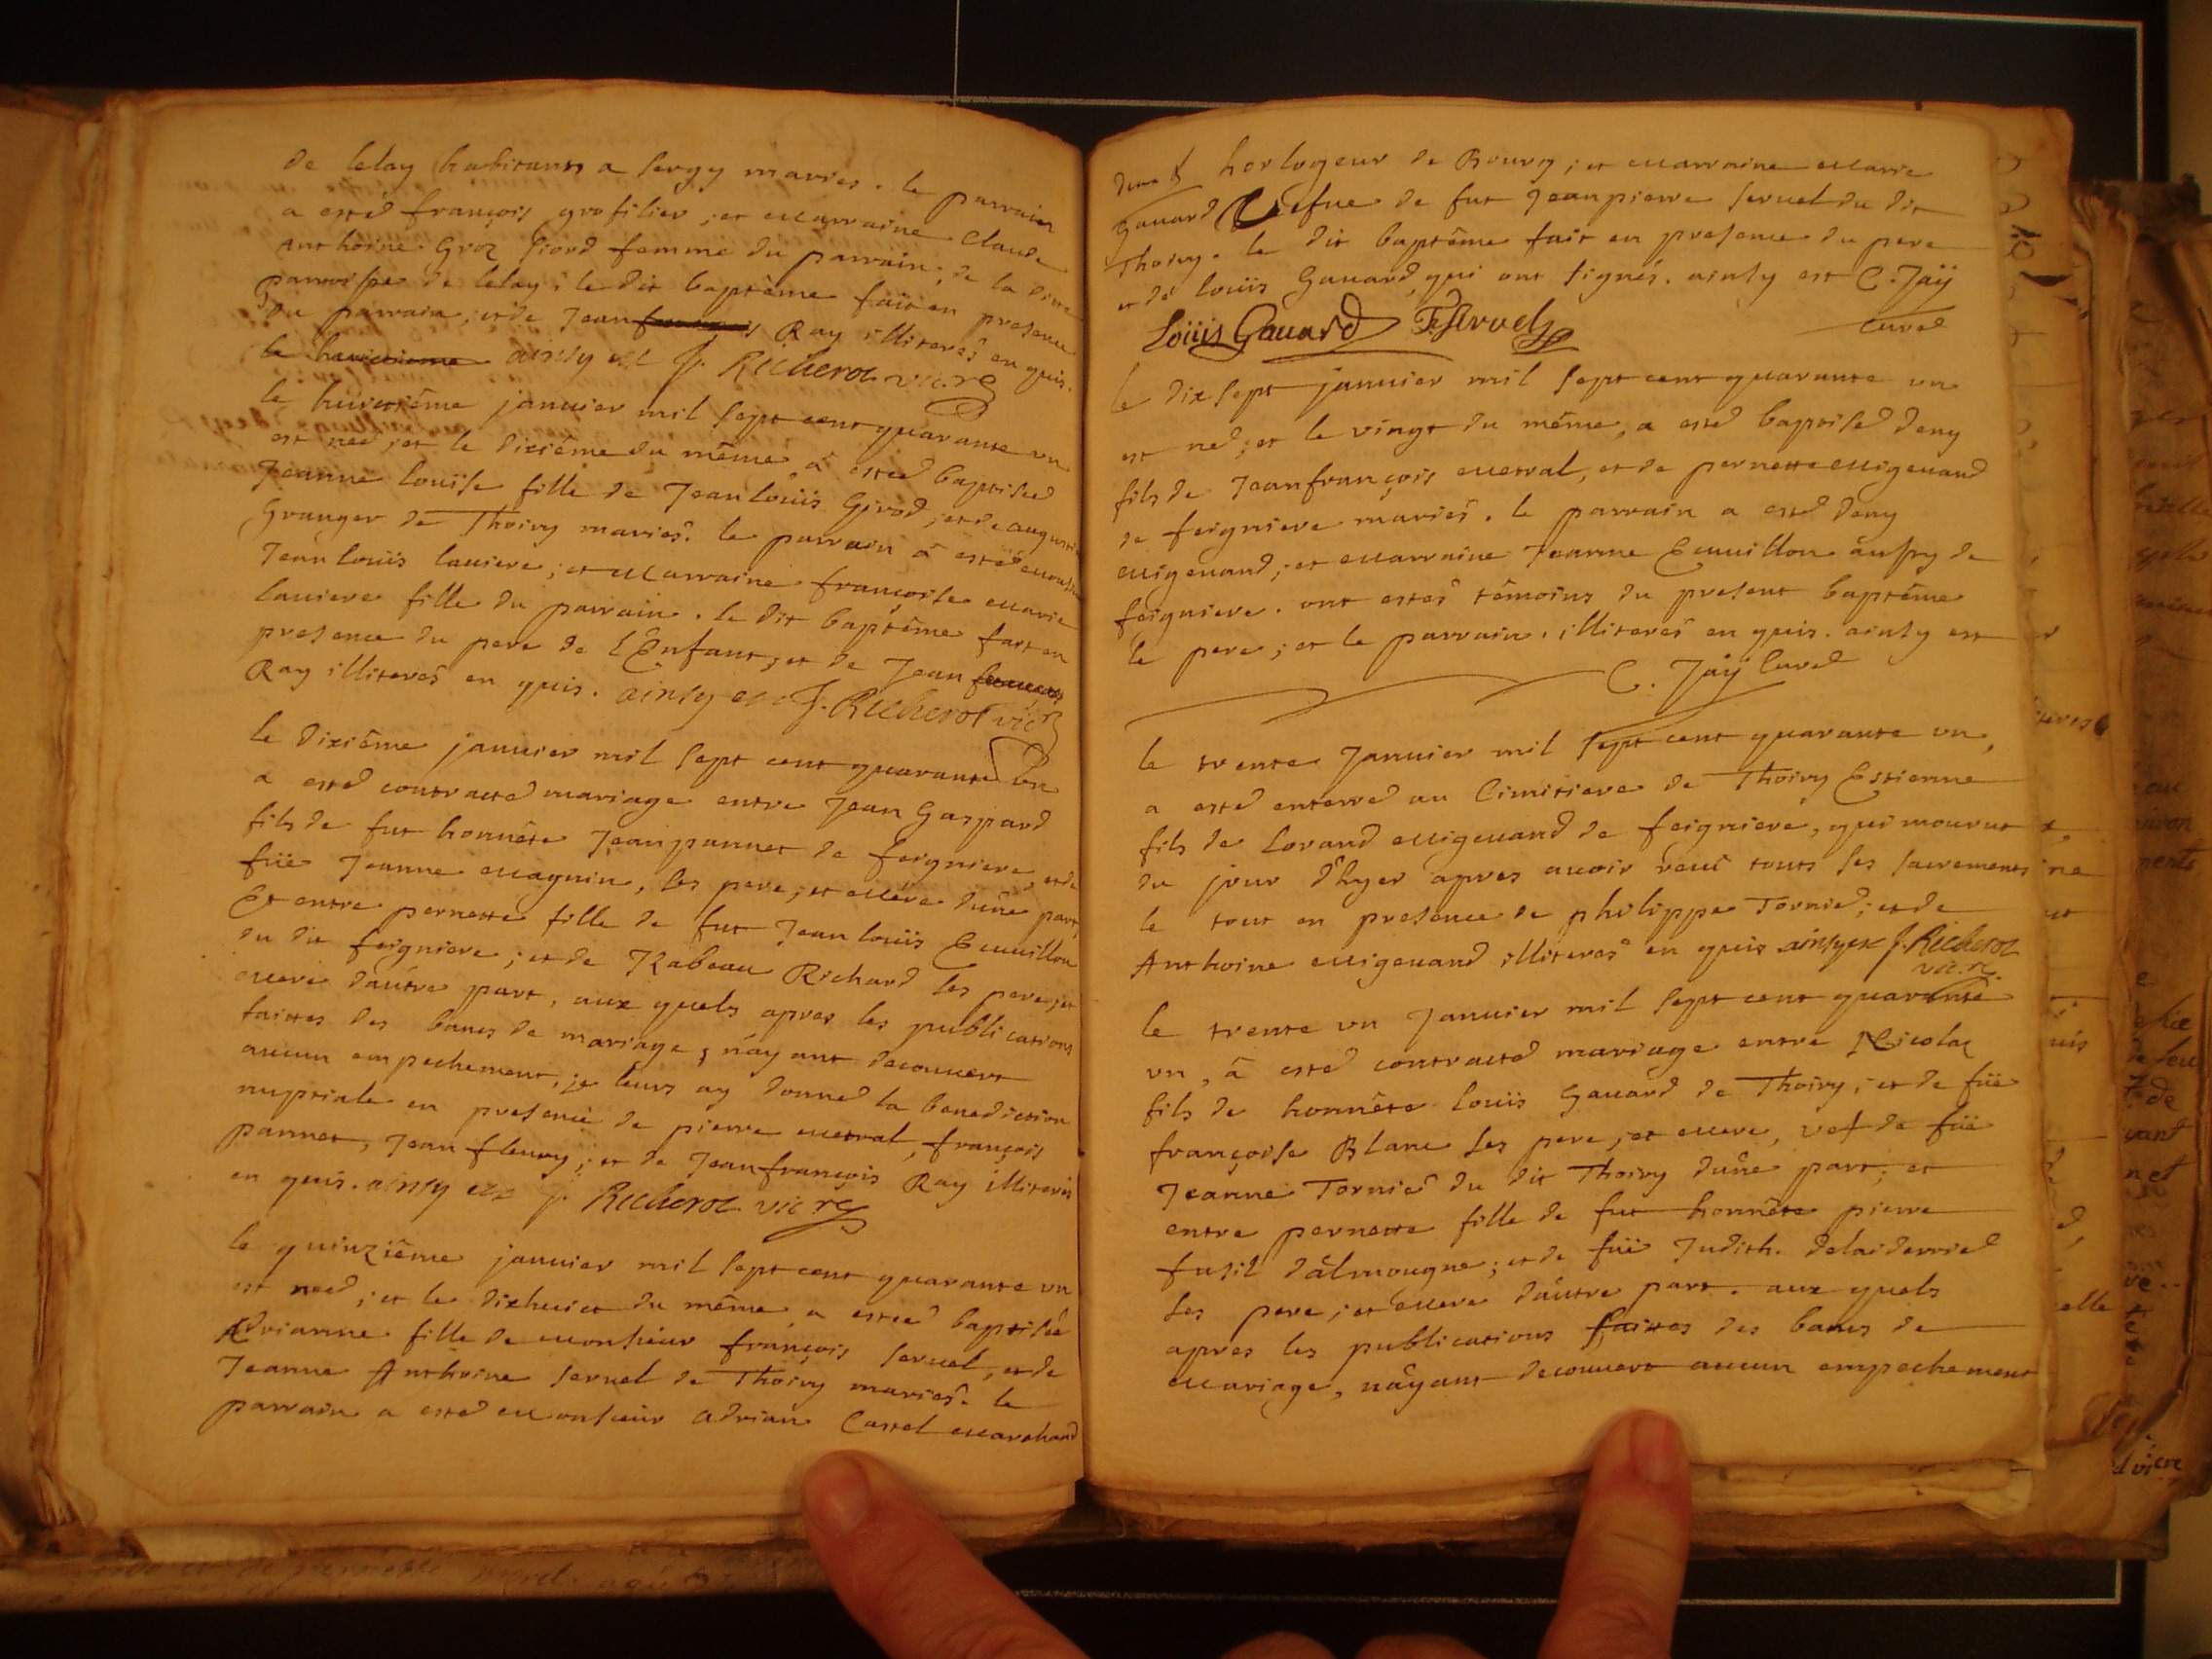 de lelay habitants a sergy mariés. le parrain
a esté françois grosfilier; et marraine Claude
Anthoine Groz fiord femme du parrain; de la dite
parroisse de lelay; le dit baptême fait en presence
du parrain, et de Jean Ray illiterés en quis.
ainsy est J. Richeroz vic.re
le huictième januier mil sept cent quarante un
est née; et le dixième du même a estée baptisée
Jeanne louise fille de Jean louis Girod; et de augustine
Granger de Thoiry mariés. le parrain a esté monsieur
Jean louis lauiere; et Marraine françoise marie
lauiere fille du parrain. le dit baptême fait en
presence du pere de l'Enfant; et de Jean
Ray illiterés en quis. ainsy est J. Richeroz vic.re
le dixième januier mil sept cent quarante un
a esté contracté mariage entre Jean Gaspard
fils de fut honnête Jean pannet de feigniere, et de
füe Jeanne magnin, ses pere; et mère d'une part,
Et entre pernette fille de fut Jean louis Emuillon
du dit feigniere; et de Isabeau Richard ses pere; et
mere d'autre part, aux quels apres les publications
faittes des bancs de mariage; n'ayant decouuert
aucun empechement, je leurs ay donné la benediction
nuptiale en presence de pierre mestral, françois
pannet, Jean fleury; et de Jean françois Ray illiterés
en quis. ainsy est J. Richeroz vic.re
le quinzième januier mil sept cent quarante un
est née; et le dixhuict du même a estée baptisée
Adrianne fille de monsieur françois seruel, et de
Jeanne Anthoine seruel de Thoiry mariés. le
parrain a esté monsieur adrian Castel marchand
horlogeur de Bourg; et marraine marie
gauard Vefue de fut Jean pierre seruel du dit
Thoiry. le dit baptême fait en presence du pere
et de louis Gauard, qui ont signés. ainsy est C. Jaÿ
Curé
Loüis Gauard F. Servel
le dix sept januier mil sept cent quarante un
est né; et le vingt du même, a esté baptisé deny
fils de Jean françois mestral, et de pernette migeuand
de feigniere mariés. le parrain a esté deny
migeuand; et marraine Jeanne Emuillon aussy de
feigniere. ont estés têmoins du present baptême
le pere; et le parrain. illiterés en quis. ainsy est
C. Jaÿ Curé
le trente Januier mil sept cent quarante un,
a esté enterré au Cimitiere de Thoiry Estienne
fils de Lorand migeuand de feigniere, qui mourut
du jour d'hyer apres auoir reçû touts ses sacrements
le tout en presence de philippe Tornié; et de
Anthoine migeuand illiterés en quis. ainsy est J. Richeroz
vic.re
le trente un Januier mil sept cent quarante
un, à esté contracté mariage entre Nicolas
fils de honnête louis Gauard de Thoiry; et de füe
françoise Blanc ses pere; et mere, vef de füe
Jeanne Tornié du dit Thoiry d'une part; et
entre pernette fille de fut honnête pierre
fusil d'almougne; et de füe Judith. delaiderrier
ses pere; et mere d'autre part. aux quels
apres les publications faittes des bancs de
mariage, n'ayant decouuert aucun empechement